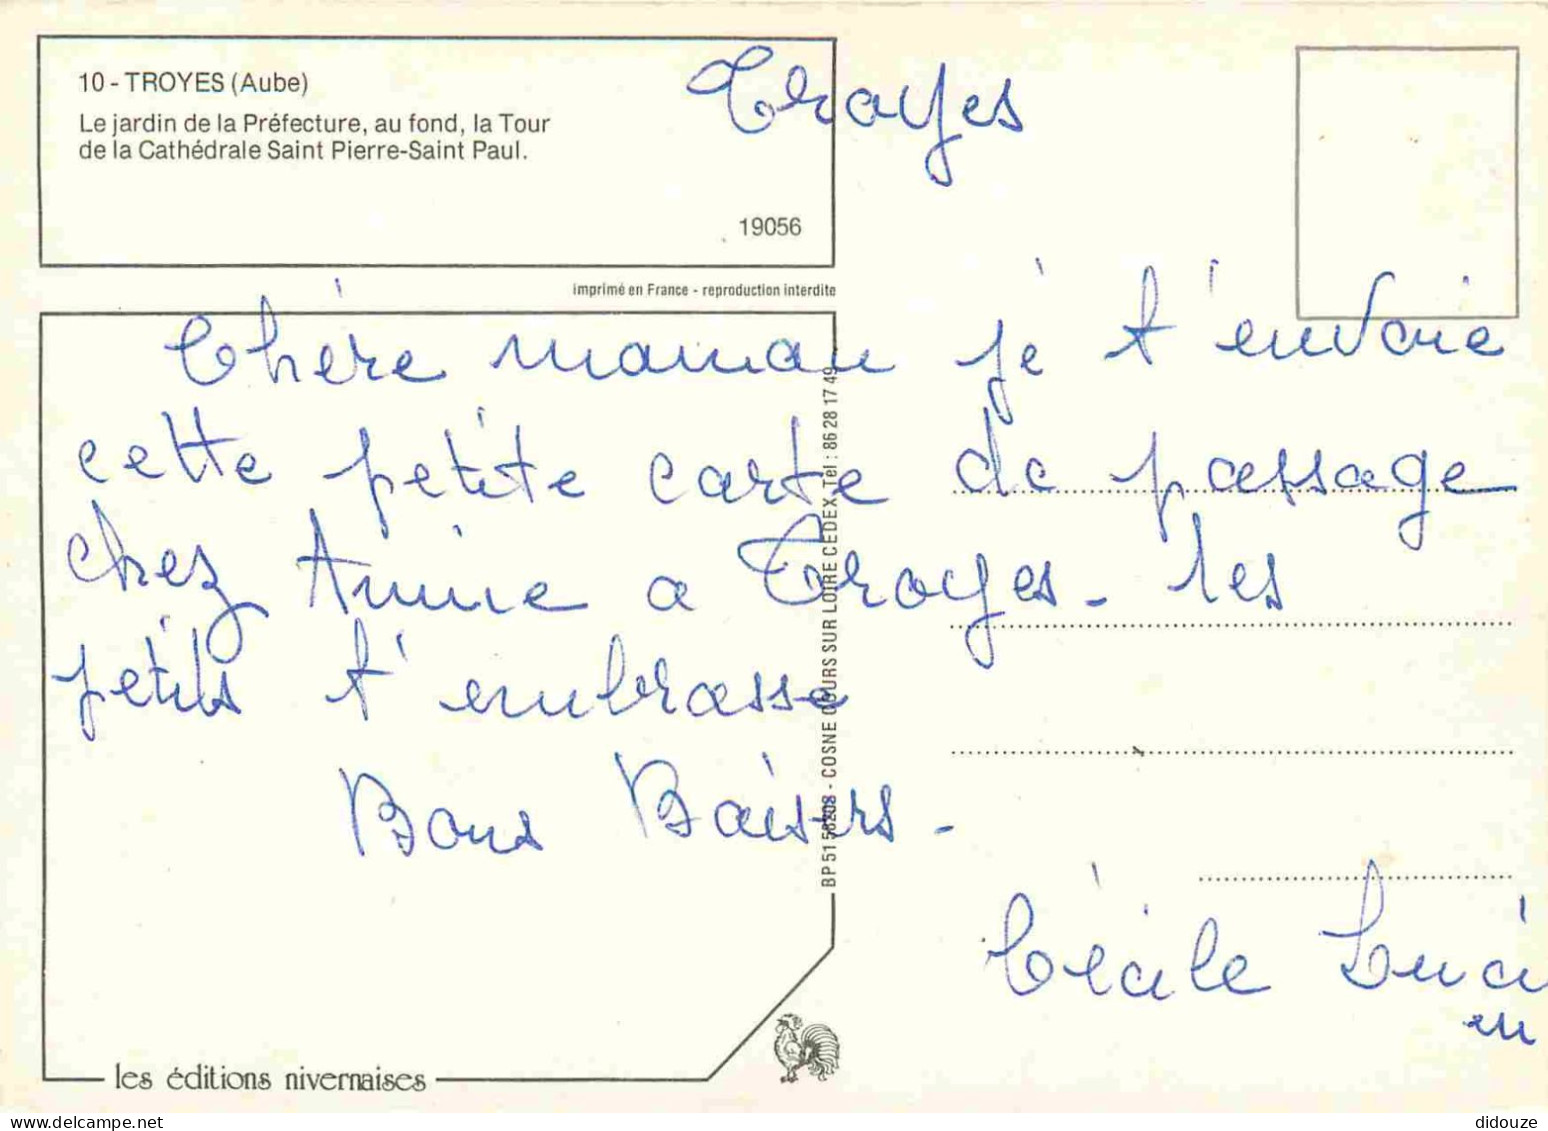 10 - TROYES (Aube)
Le jardin de la Préfecture, au fond, la Tour
de la Cathédrale Saint Pierre-Saint Paul.
19056
Troyes
imprimé en France - reproduction interdite
Chére maman je t'envoie
cette petite carte de passage
chez Annie a Troyes. les
petits t'embrasse
Bons Baisers.
Cécile Luci
en
BP 51 58203 - COSNE COURS SUR LOIRE CEDEX Tel : 86 28 17 49
les éditions nivernaises
didouze